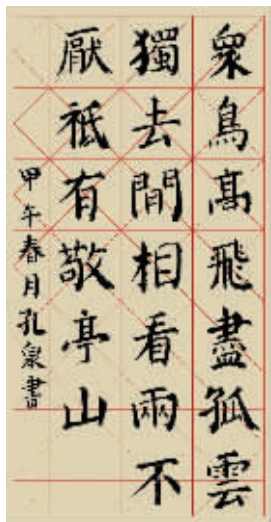 眾鳥高飛盡孤雲
獨去間相看兩不
厭祗有敬亭山
甲午春月孔泉書